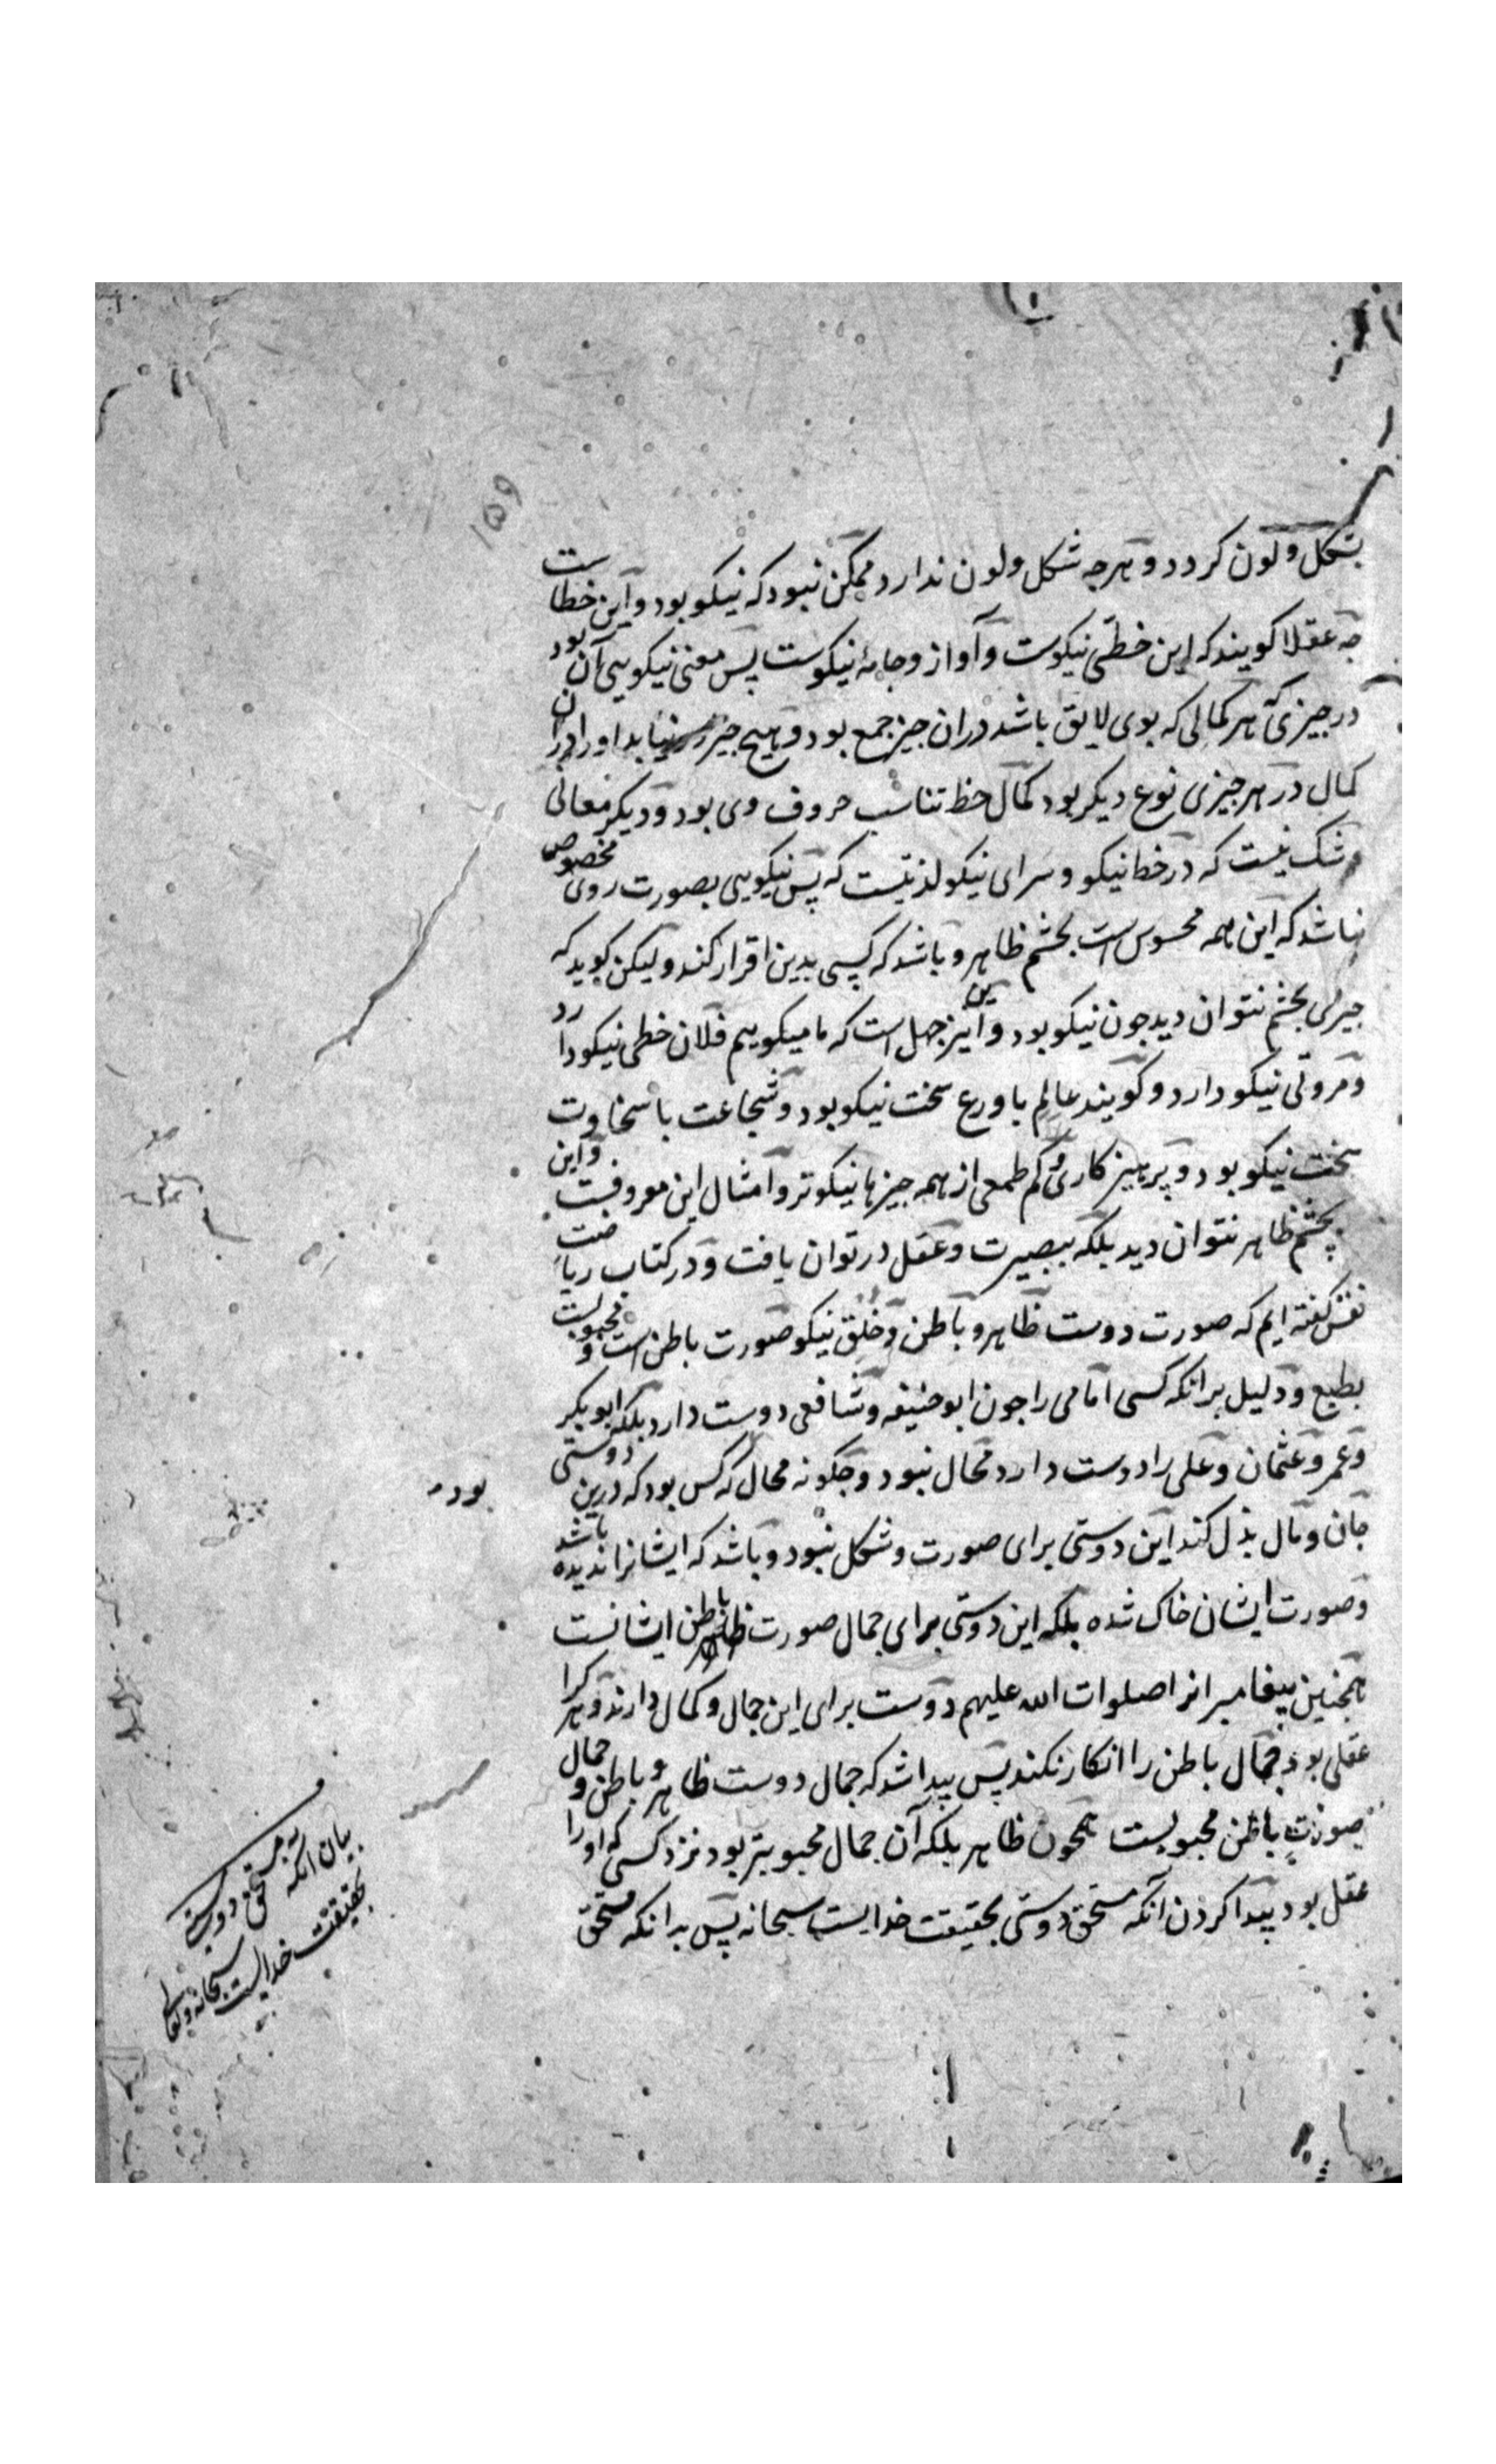 ۱۵۹
بشکل ولون کردد وهرجه شکل ولون ندارد ممکن نبود که نیکو بود واین خطاست
جه عقلا کویند که این خطی نیکوست وآواز وجامهٔ نیکوست پس معنی نیکویی آن بود
در جیزی که هر کمالی که بوی لایق باشد دران جیز جمع بود وهیج جیز نیابد اورا دران
کمال در هر جیزی نوع دیکر بود کمال خط تناسب حروف وی بود ودیکر معانی
شک نیست که در خط نیکو وسرای نیکو لذتیست که پس نیکویی بصورت روی مخصوص
نباشد که این همه محسوس است بجشم ظاهر وباشد که کسی بدین اقرار کند ولیکن کوید که
جیزی بجشم نتوان دید جون نیکو بود واین نیز جهل است که ما میکوییم فلان خطی نیکو دارد
ومروتی نیکو دارد وکویند عالم با ورع سخت نیکو بود وشجاعت با سخاوت
سخت نیکو بود وپرهیز کاری وکم طمعی از همه جیزها نیکوتر وامثال این معروفست واین
بچشم ظاهر نتوان دید بلکه ببصیرت وعقل در توان یافت ودر کتاب ریاضت
نفس کفته ایم که صورت دوست ظاهر وباطن وخلق نیکو صورت باطن است ومحبوبست
بطبع ودلیل برانکه کسی امامی را جون ابو حنیفه وشافعی دوست دارد بلکه ابو بکر
وعمر وعثمان وعلی را دوست دارد محال نبود وجکونه محال که کس بود که درین دوستی
جان ومال بذل کند این دوستی برای صورت وشکل نبود وباشد که ایشانرا ندیده باشد
وصورت ایشان خاک شده بلکه این دوستی برای جمال صورت باطن ایشانست
همجنین پیغامبرانرا صلوات الله علیهم دوست برای این جمال وکمال دارند وهر کرا
عقلی بود جمال باطن را انکار نکند پس پیدا شد که جمال دوست ظاهر وباطن وجمال
صورت باطن محبوبست همجون ظاهر بلکه آن جمال محبوبتر بود نزد کسی که اورا
عقل بود پیدا کردن آنکه مستحق دوستی بحقیقت خدایست سبحانه پس بدانکه مستحق
بود
بیان انکه
مستحق دوستی
بحقیقت خدایست
سبحانه وتعالی